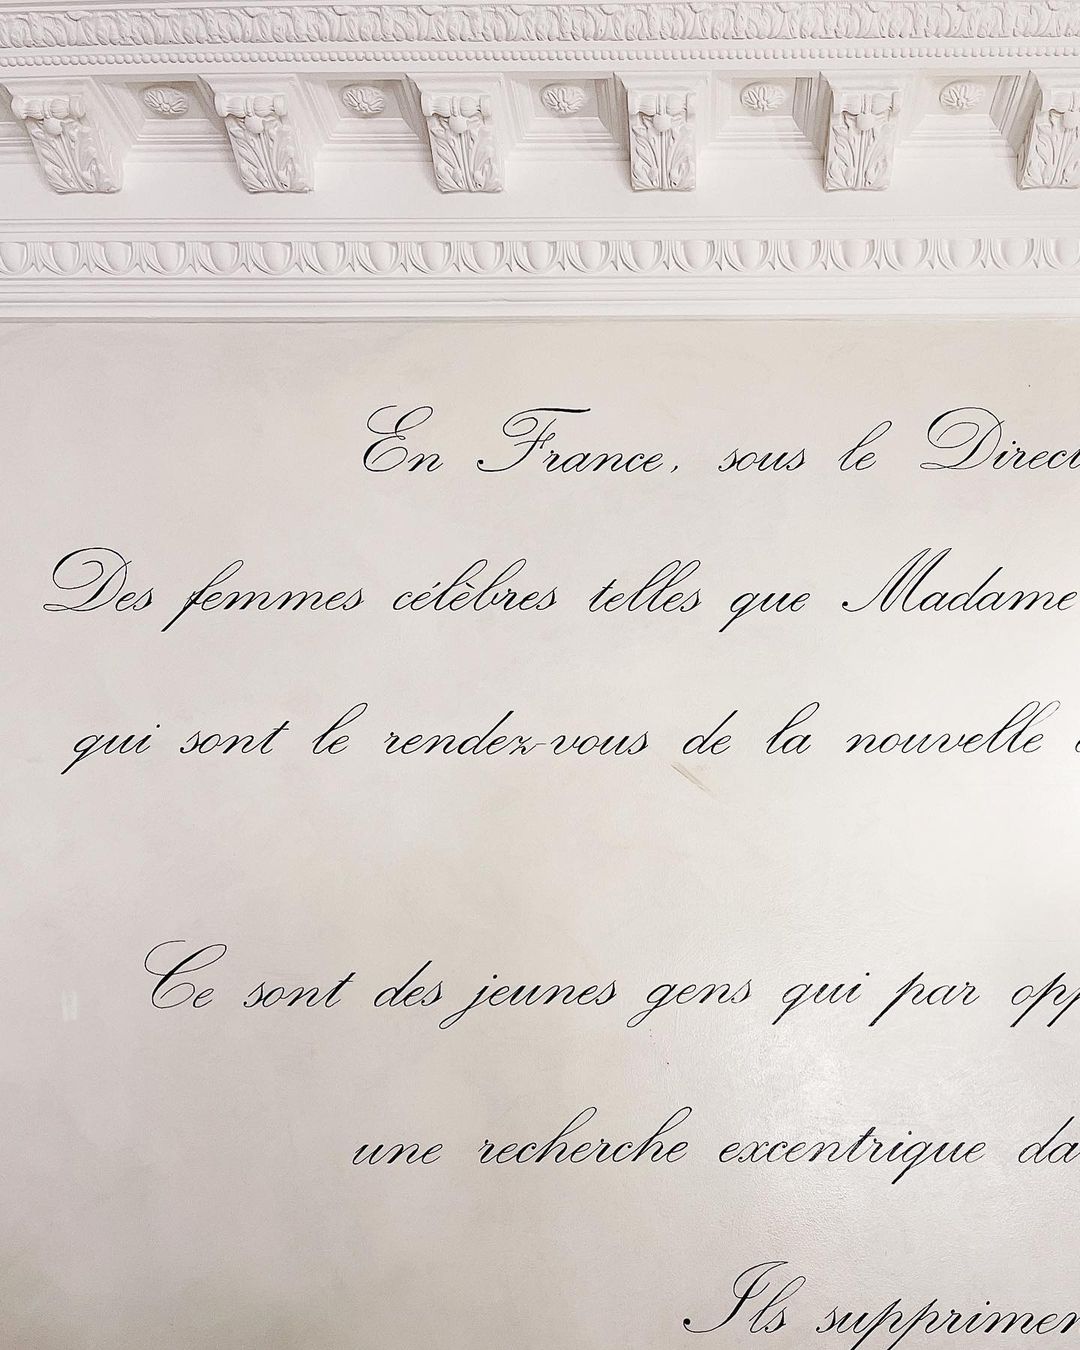 En France, sous le Direct
Des femmes célèbres telles que Madame
qui sont le rendez-vous de la nouvelle
Ce sont des jeunes gens qui par opp
une recherche excentrique da
Ils supprimen